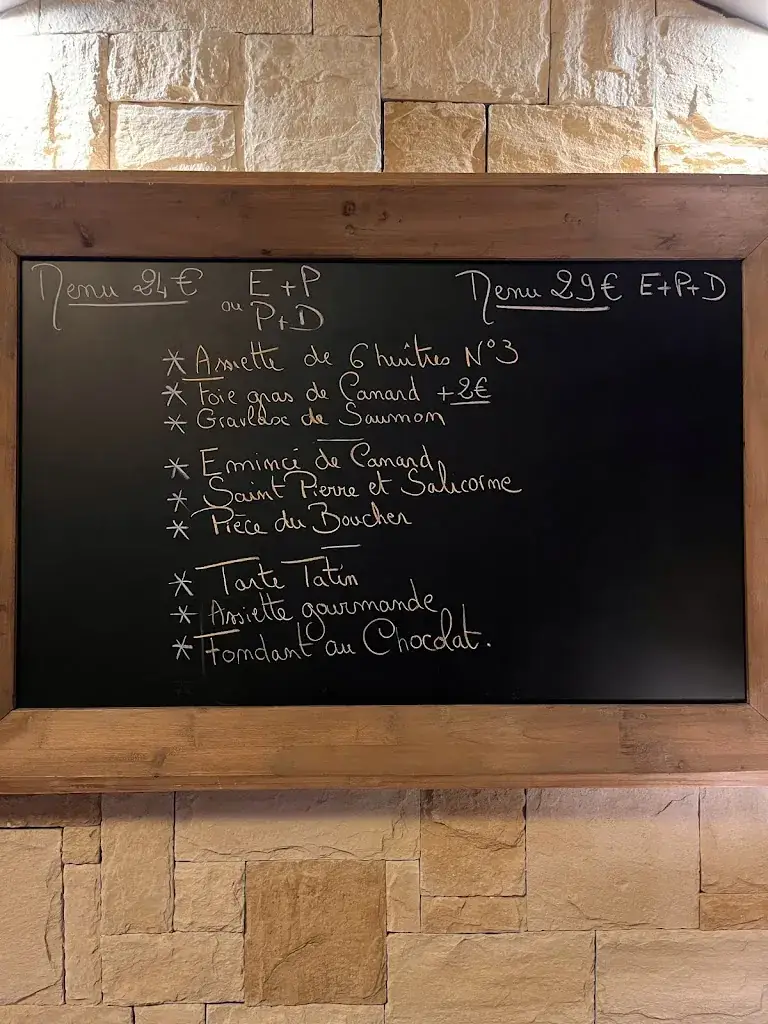 Menu 24€ E+P
ou P+D
Menu 29€ E+P+D
* Assiette de 6 huîtres N°3
* Foie gras de Canard +2€
* Gravlax de Saumon
* Emincé de Canard
* Saint Pierre et Salicorne
* Pièce du Boucher
* Tarte Tatin
* Assiette gourmande
* Fondant au Chocolat.